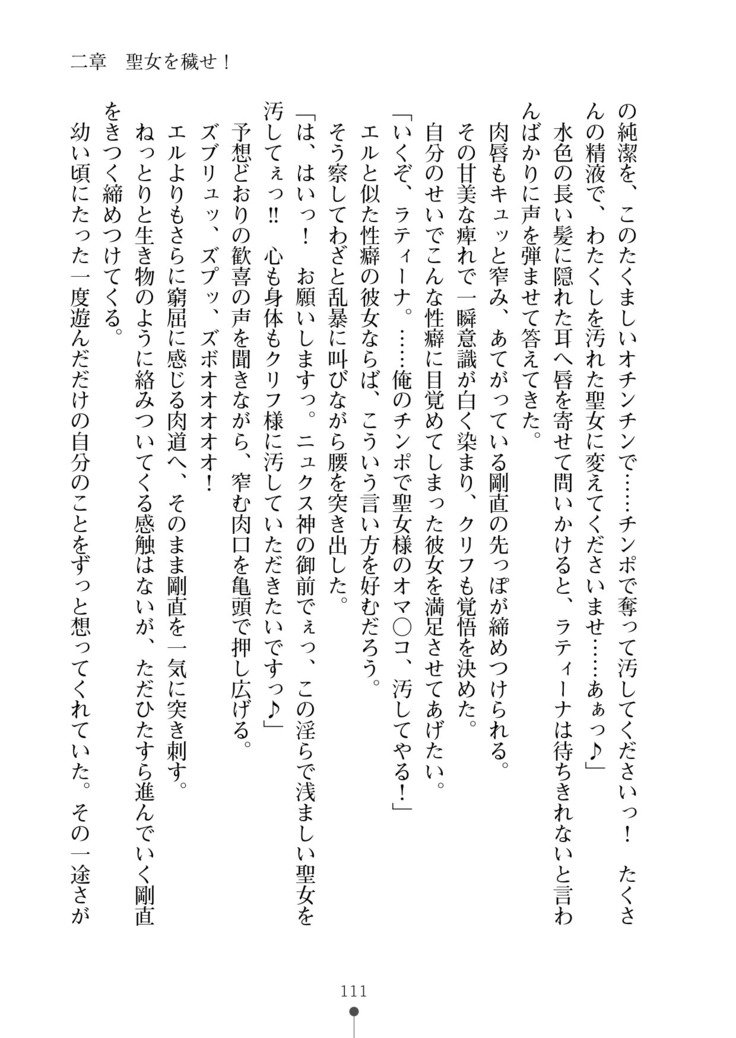 二章　聖女を穢せ！
の純潔を、このたくましいオチンチンで……チンポで奪って汚してくださいっ！　たくさ
んの精液で、わたくしを汚れた聖女に変えてくださいませ……あぁっ♪」
　水色の長い髪に隠れた耳へ唇を寄せて問いかけると、ラティーナは待ちきれないと言わ
んばかりに声を弾ませて答えてきた。
　肉唇もキュッと窄み、あてがっている剛直の先っぽが締めつけられる。
　その甘美な痺れで一瞬意識が白く染まり、クリフも覚悟を決めた。
　自分のせいでこんな性癖に目覚めてしまった彼女を満足させてあげたい。
「いくぞ、ラティーナ。……俺のチンポで聖女様のオマ〇コ、汚してやる！」
　エルと似た性癖の彼女ならば、こういう言い方を好むだろう。
　そう察してわざと乱暴に叫びながら腰を突き出した。
「は、はいっ！　お願いしますっ。ニュクス神の御前でぇっ、この淫らで浅ましい聖女を
汚してぇっ‼　心も身体もクリフ様に汚していただきたいですっ♪」
　予想どおりの歓喜の声を聞きながら、窄む肉口を亀頭で押し広げる。
　ズブリュッ、ズプッ、ズボオオオオオ！
　エルよりもさらに窮屈に感じる肉道へ、そのまま剛直を一気に突き刺す。
　ねっとりと生き物のように絡みついてくる感触はないが、ただひたすら進んでいく剛直
をきつく締めつけてくる。
　幼い頃にたった一度遊んだだけの自分のことをずっと想ってくれていた。その一途さが
111